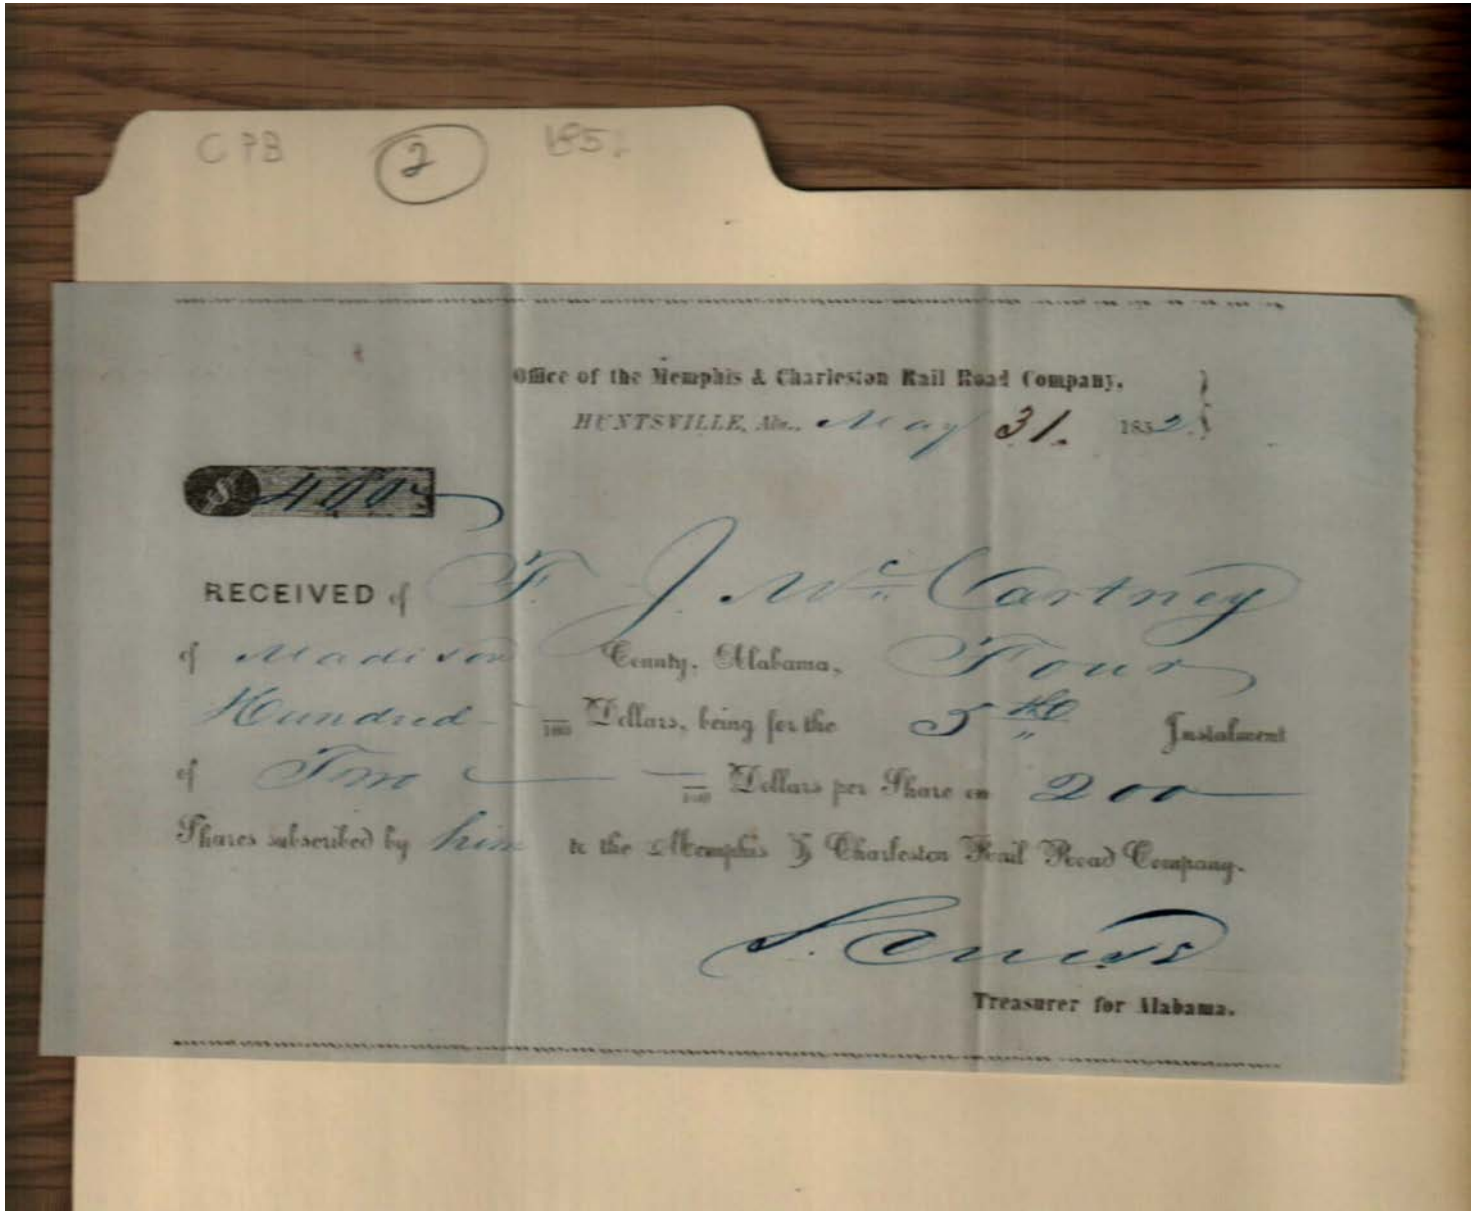 C7B 2 185
Office of the Memphis & Charleston Rail Road Company.
HUNTSVILLE, Ala., May 31. 1852.
$ 400
RECEIVED of F. J. Mc Cartney
of Madison County, Alabama, Four
Hundred — /100 Dollars, being for the 5th Instalment
of Two — /100 Dollars per Share on 200
Shares subscribed by him to the Memphis & Charleston Rail Road Company.
S.
Treasurer for Alabama.